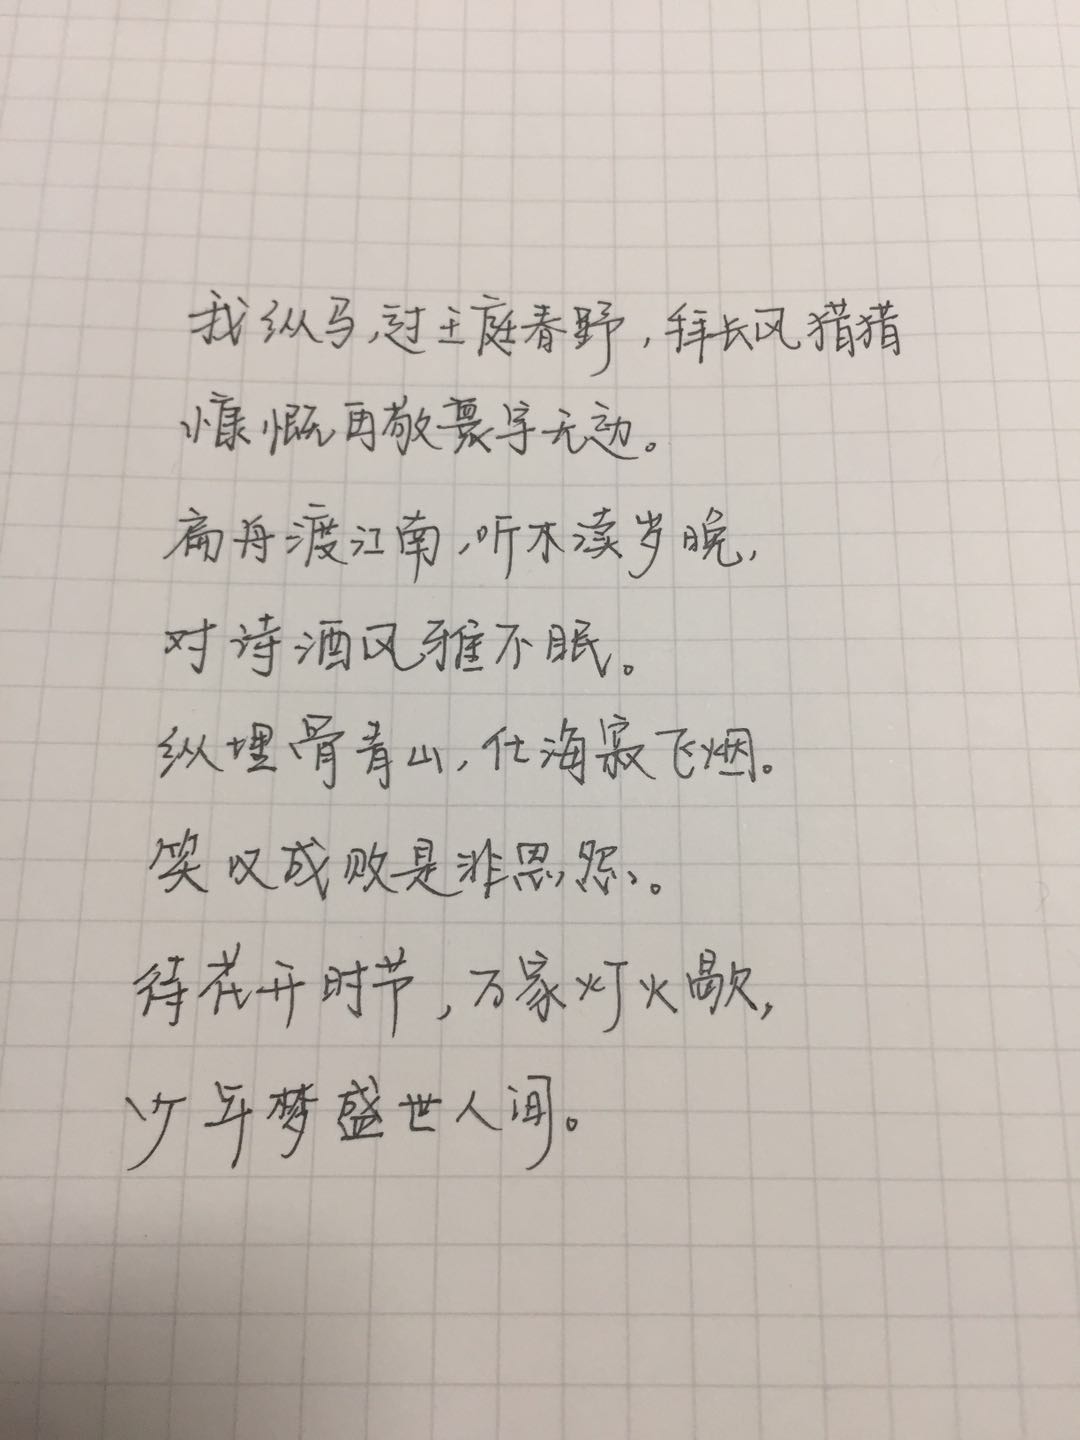 我纵马过王庭春野，拜长风猎猎
慷慨再敬寰宇无边。
扁舟渡江南，听木渎岁晚，
对诗酒风雅不眠。
纵埋骨青山，仕海寂飞烟。
笑叹成败是非恩怨。
待花开时节，万家灯火歇，
少年梦盛世人间。